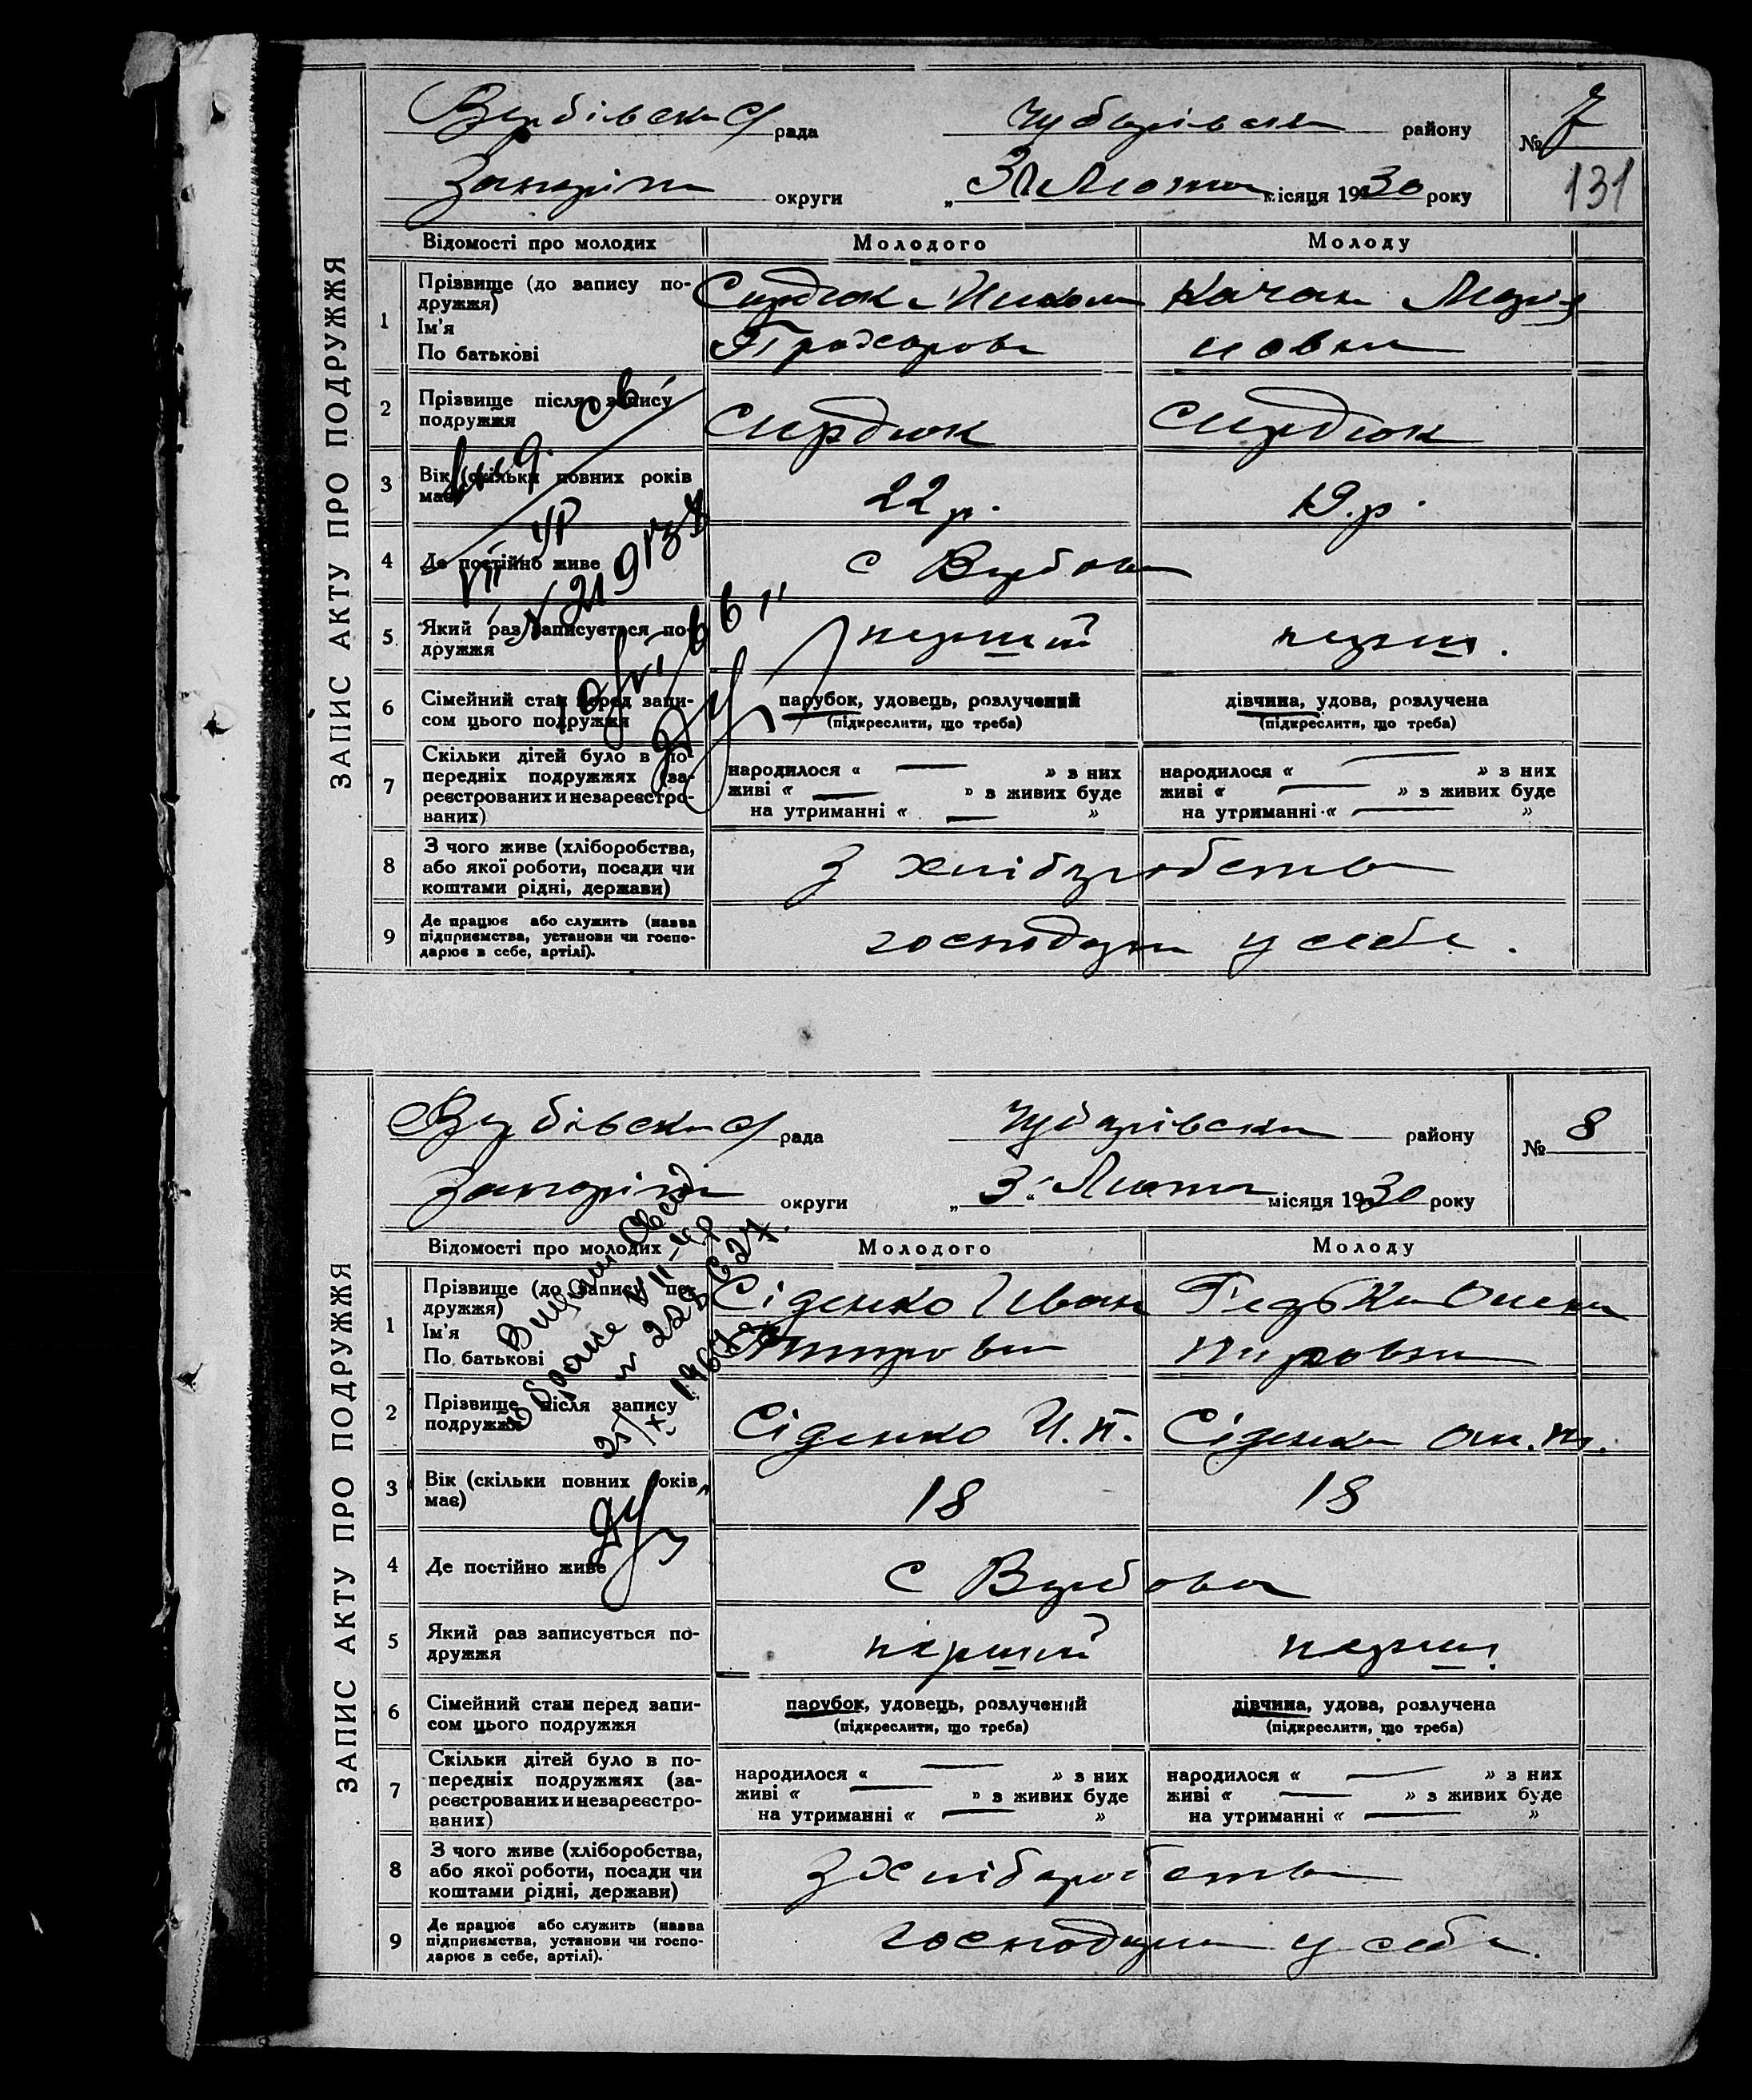 ЗАПИС АКТУ ПРО ПОДРУЖЖЯ
Вербівська рада Чубарівськ району № 7
Запоріж округи „3" Лютого місяця 1930 року 131
Відомості про молодих Молодого Молоду
1 Прізвище (до запису подружжя) Сердюк Качан Марія
Ім'я
По батькові
2 Прізвище після запису подружжя Сердюк Сердюк
3 Вік (скільки повних років має) 22 р. 19.р.
4 Де постійно живе с Вербова
5 Який раз записується подружжя перший перший.
6 Сімейний стан перед записом цього подружжя парубок, удовець, розлучений дівчина, удова, розлучена
(підкреслити, що треба) (підкреслити, що треба)
7 Скільки дітей було в попередніх подружжях (зареєстрованих и незареєстрованих) народилося « — » з них народилося « — » з них
живі « — » з живих буде живі « — » з живих буде
на утриманні « — » на утриманні « — »
8 З чого живе (хліборобства, або якої роботи, посади чи коштами рідні, держави) З хліборобства
9 Де працює або служить (назва підприємства, установи чи господарює в себе, артілі). господарює у себе.
ЗАПИС АКТУ ПРО ПОДРУЖЖЯ
Вербівська рада Чубарівськ району № 8
Запоріж округи „3" Лютого місяця 1930 року
Відомості про молодих Молодого Молоду
1 Прізвище (до запису подружжя) Сіденко Іван
Ім'я
По батькові
2 Прізвище після запису подружжя Сіденко И.П. Сіденко
3 Вік (скільки повних років має) 18 18
4 Де постійно живе с Вербова
5 Який раз записується подружжя перший перший
6 Сімейний стан перед записом цього подружжя парубок, удовець, розлучений дівчина, удова, розлучена
(підкреслити, що треба) (підкреслити, що треба)
7 Скільки дітей було в попередніх подружжях (зареєстрованих и незареєстрованих) народилося « — » з них народилося « — » з них
живі « — » з живих буде живі « — » з живих буде
на утриманні « — » на утриманні « — »
8 З чого живе (хліборобства, або якої роботи, посади чи коштами рідні, держави) З хліборобства
9 Де працює або служить (назва підприємства, установи чи господарює в себе, артілі). господарює у себе.